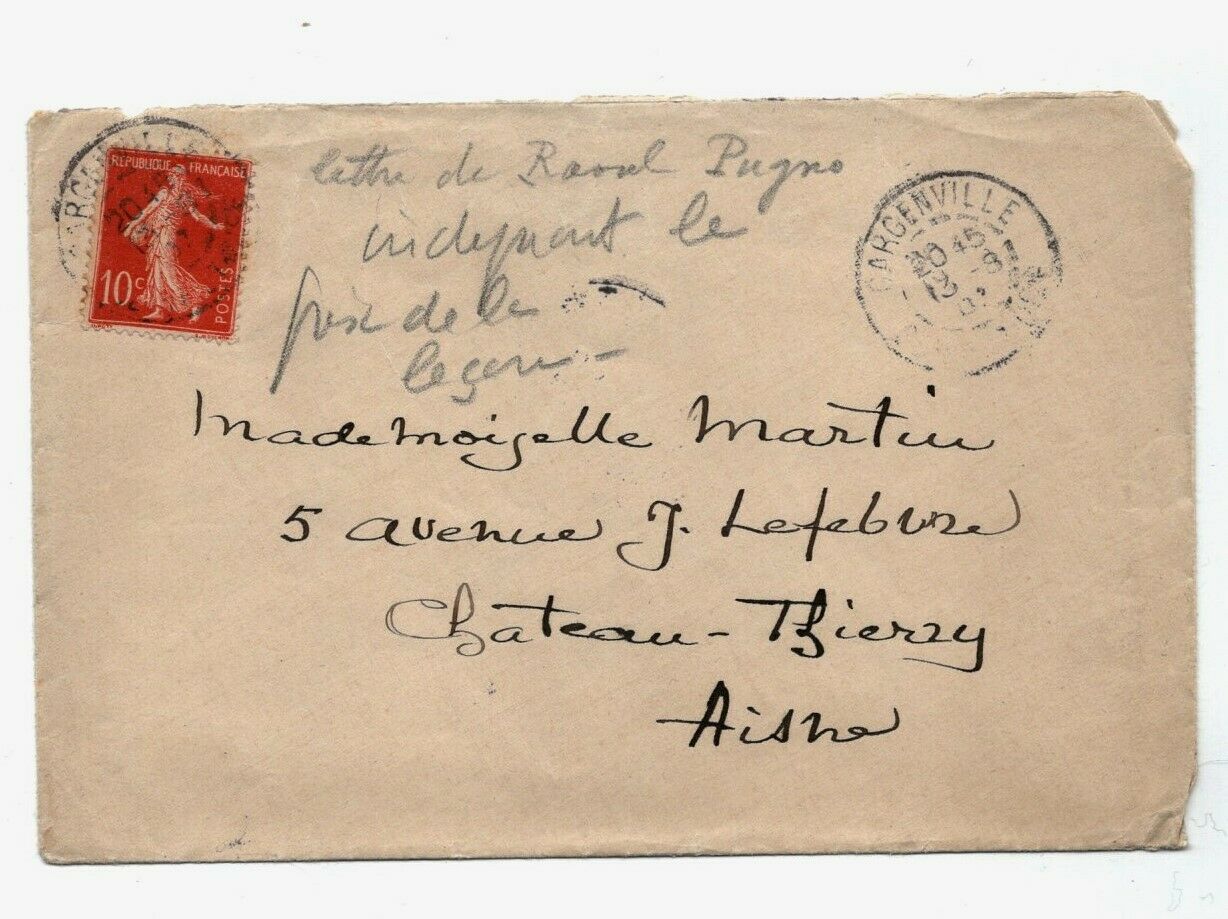 RÉPUBLIQUE FRANÇAISE
10c
POSTES
GARGENVILLE
lettre de Raoul Pugno
indiquant le
prix de la
leçon -
GARGENVILLE
Mademoizelle Martin
5 avenue J. Lefebvre
Château-Thierry
Aisne